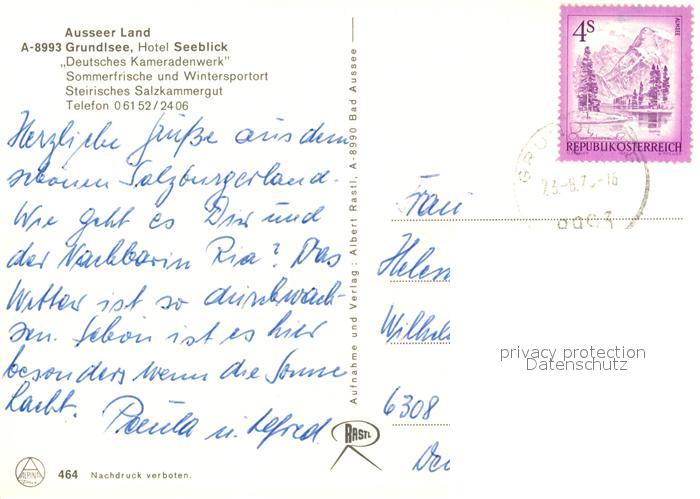 Ausseer Land
A-8993 Grundlsee, Hotel Seeblick
„Deutsches Kameradenwerk"
Sommerfrische und Wintersportort
Steirisches Salzkammergut
Telefon 06152/2406
Herzliche Grüße aus dem
schönen Salzburgerland.
Wie geht es Dir und
der Nachbarin Ria? Das
Wetter ist so durchwach-
sen. Schön ist es hier
besonders wenn die Sonne
lacht. Paula u.
Aufnahme und Verlag: Albert Rastl, A-8990 Bad Aussee
RASTL
ALPINA
464 Nachdruck verboten.
4S
ALMSEE
REPUBLIK ÖSTERREICH
Frau
Helen
Wilhel
6308
privacy protection
Datenschutz